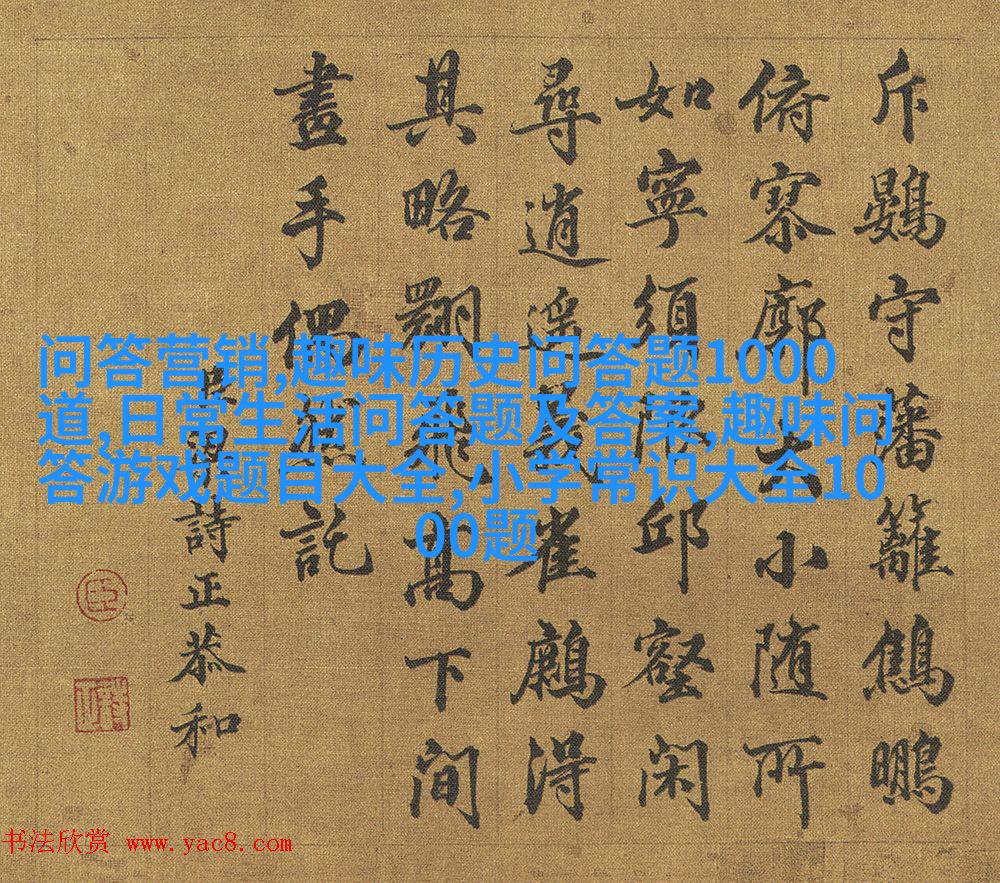 斥鷃守藩籬鷦鵬
俯寥廓大小随所
如寧須限邱壑闲
尋逍遥義雀得
其略翾飛高下間
畫手偶然託
詩正恭和
臣
问答营销,趣味历史问答题1000
道,日常生活问答题及答案,趣味问
答游戏题目大全,小学常识大全10
00题
书法欣赏 www.yac8.com